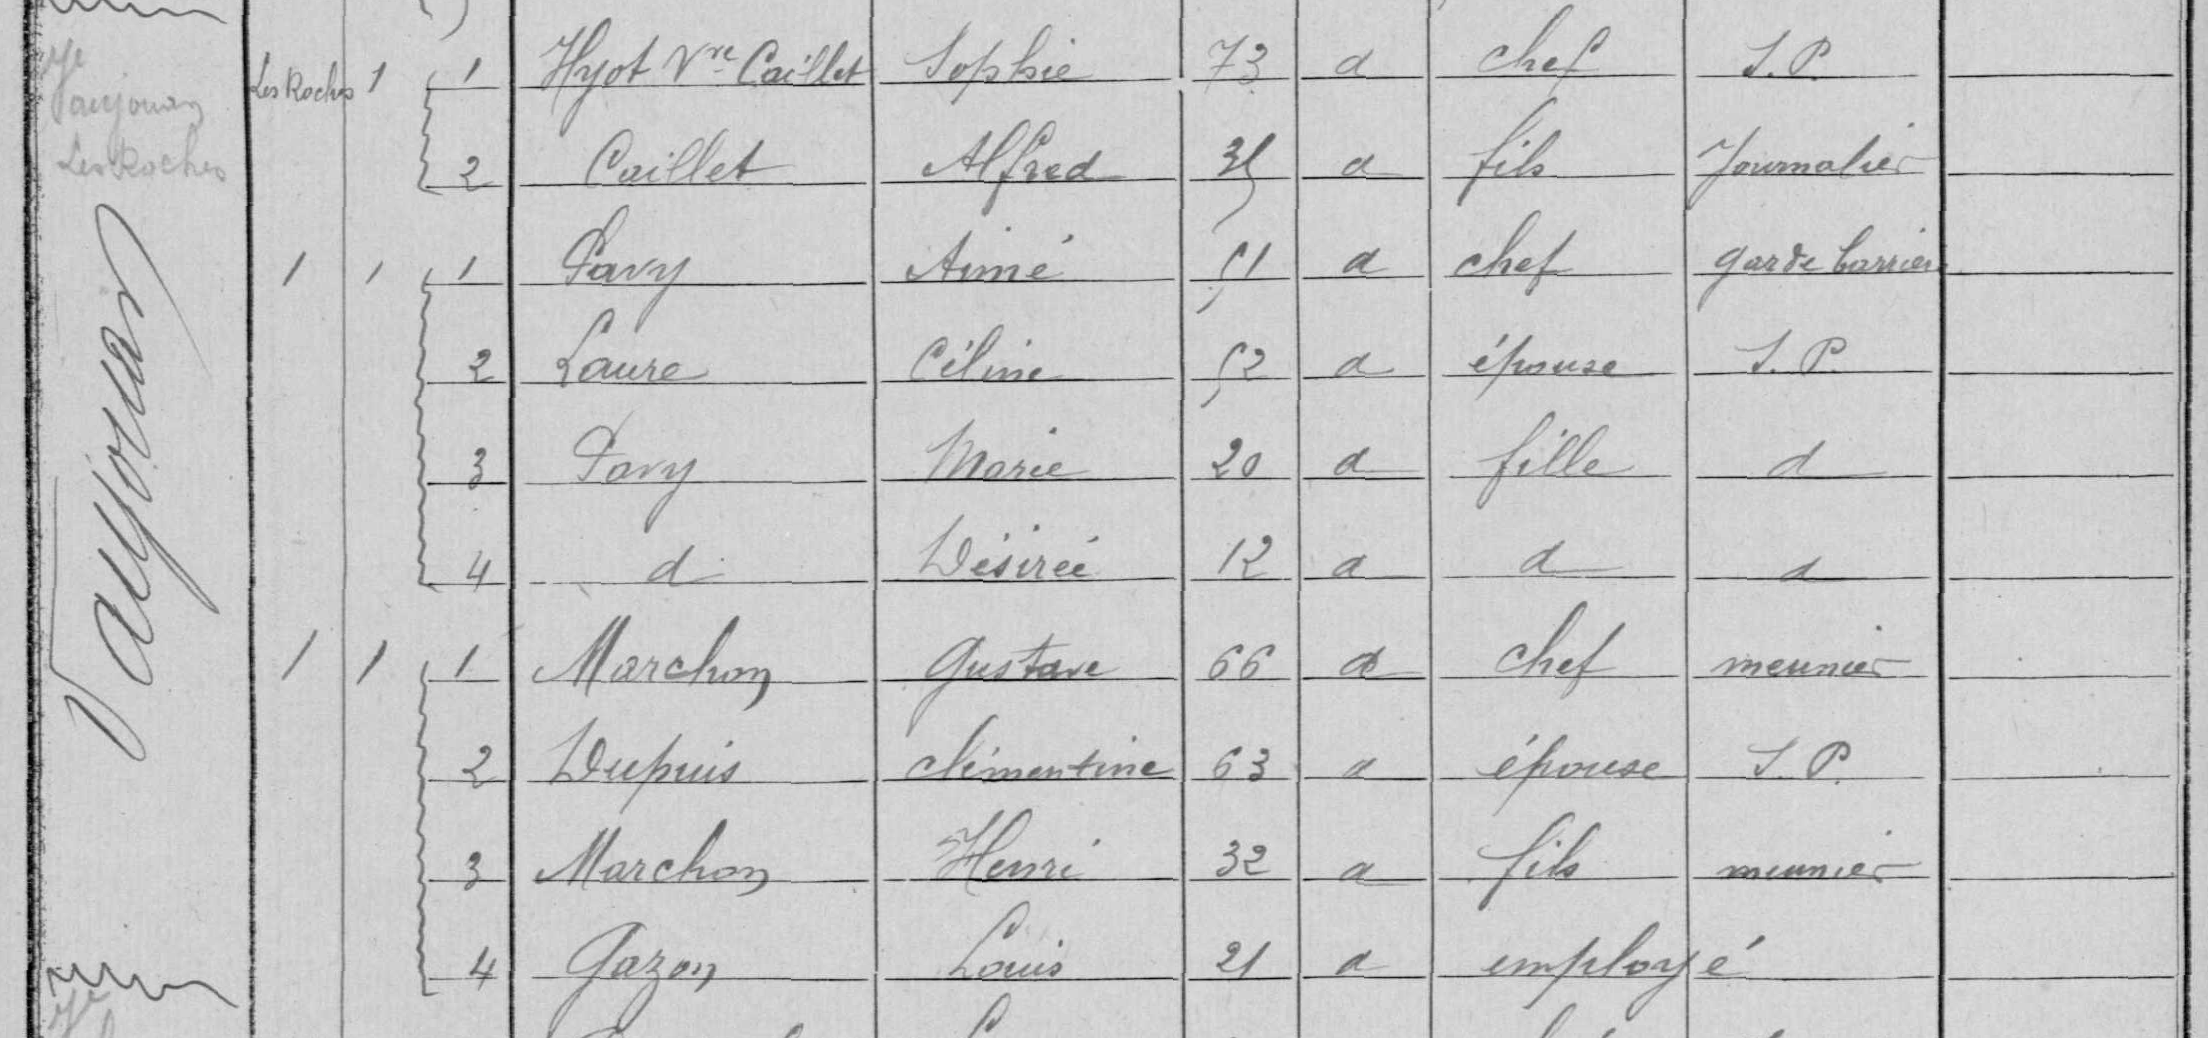 Vaujouan
Les Roches
Vaujouan
Les Roches 1 1 Hyot Vve Caillet Sophie 73 d chef S. P.
2 Caillet Alfred 35 d fils Journalier
1 1 1 Pavy Aimé 51 d chef garde barrière
2 Laure Céline 52 d épouse S. P.
3 Pavy Marie 20 d fille d
4 d Désirée 12 d d d
1 1 1 Marchon Gustave 66 d chef meunier
2 Dupuis Clémentine 63 d épouse S. P.
3 Marchon Henri 32 d fils meunier
4 Gazon Louis 21 d employé